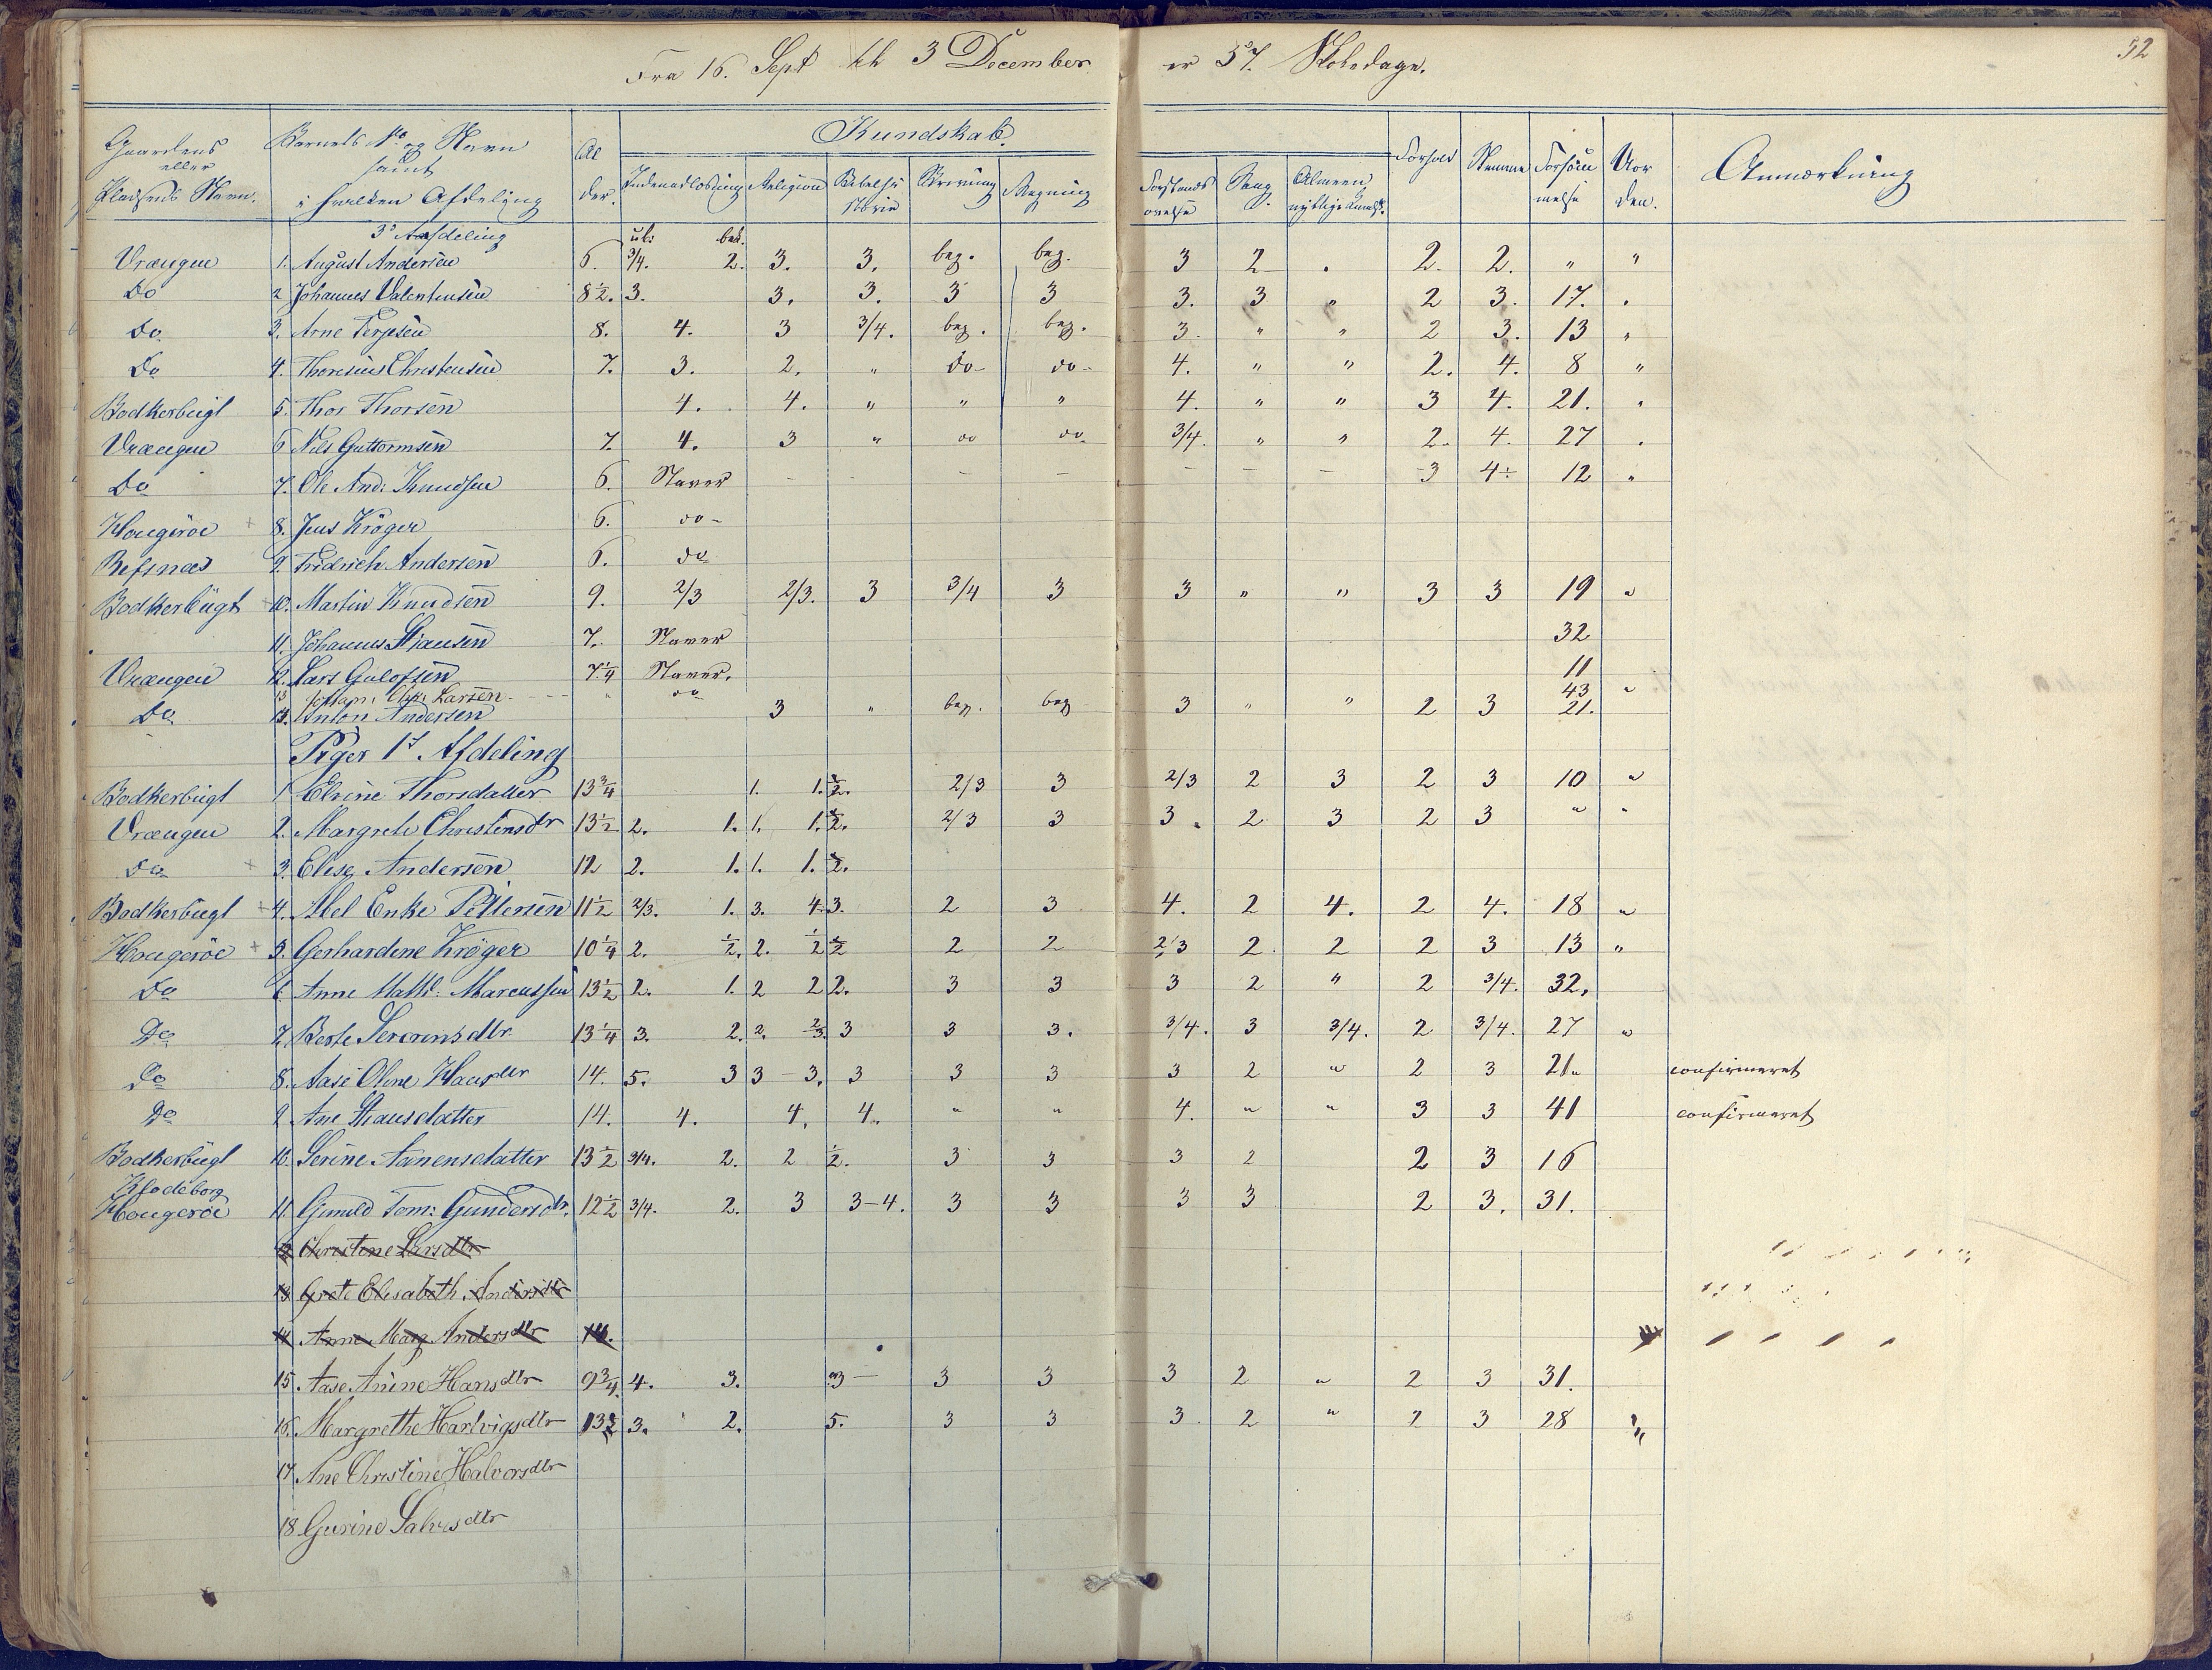 Fra 16. Sept til 3 December er 57. Skoledage.
52
Gaardens eller Pladsens Navn.
Barnets No og Navn samt i hvilken Afdeling
Alder.
Kundskab.
Indenadlæsning Religion Bibelhistorie Skrivning Regning
Forstandsøvelse Sang Almeen
Forhold Stemme Forsømmelse Uorden.
Anmærkning
3die Afdeling
Vrængen 1. August Andersen 6. 3/4. 2. 3. 3. beg. beg. 3 2 . 2. 2. " "
Do 2 Johannes Valentinsen 8½. 3. 3. 3. 3 3 3. 3 " 2 3. 17. "
Do 3. Arne Terjesen 8. 4. 3 3/4. beg. beg. 3. " " 2 3. 13 "
Do 4. Thorsius Christensen 7. 3. 2. " do do 4. " " 2. 4. 8 "
Bodkerbugt 5. Thor Thorsen 4. 4. " " " 4. " " 3 4. 21. "
Vrængen 6 Nils Guttormsen 7. 4. 3 " do do 3/4. " " 2. 4. 27 "
Do 7. Ole And: Knudsen 6. Staver - - - - - - - 3 4÷ 12 "
Hougeröe 8. Jens Kröger 6. do
Refsnæs 9. Fridrich Andersen 6. do
Bodkerbugt 10. Martin Knudsen 9. 2/3 2/3. 3 3/4 3 3 " " 3 3 19 "
11. Johannes 7. Staver 32
Vrængen 12. Lars Gulofsen 7¼ Staver. 11
13 Larsen " do 43 "
Do 14. Anton Andersen 3 " beg. beg 3 " " 2 3 21.
Piger 1st Afdeling
Bodkerbugt 1 Elvine Thorsdatter 13¾ 1. 1. ½. 2/3 3 2/3 2 3 2 3 10 "
Vrængen 2. Margrete Christensdtr 13½ 2. 1. 1. 1. ½. 2/3 3 3 2 3 2 3 " "
do 3. Elise Andersen 12 2. 1. 1. 1. ½.
Bodkerbugt 4. Abel Enke Pettersen 11½ 2/3. 1. 3. 4. 3. 2 3 4. 2 4. 2 4. 18 "
Hougeröe 5. Gerhardine Kröger 10¼ 2. ½. 2. ½ ½ 2 2 2/3 2 2 2 3 13 "
Do 6. Anne Math: Marcussen 13½ 2. 1. 2 2 2. 3 3 3 2 " 2 3/4. 32.
Do 7. Berte Serensdtr. 13¼ 3. 2. 2. 2/3. 3 3 3. 3/4. 3 3/4. 2 3/4. 27 "
Do 8. Aase Oline Hansdtr 14. 5. 3 3 - 3. 3 3 3 3 2 " 2 3 21. confirmeret
Do 9 Ane Hansdatter 14. 4. 4. 4. " " 4. " " 3 3 41 confirmeret
Bodkerbugt 10. Serine Aanensdatter 13½ 3/4. 2. 2 ½. 3 3 3 2 2 3 16
Klodeborg
Hougeröe 11. Gunild Tom: Gundersdtr. 12½ 3/4. 2. 3 3-4. 3 3 3 3 2 3. 31.
12 Christine Larsdtr
13 Grete Elisabeth Andersdtr
14 Anne Marg Andersdtr 14.
15 Aase Anine Hansdtr 9¾. 4. 3. 3 - 3 3 3 2 " 2 3 31.
16. Margrethe Hartvigsdtr 13½ 3. 2. 5. 3 3 3 2 " 2 3 28
17 Ane Christine Halvorsdtr
18 Gurine Salvesdtr